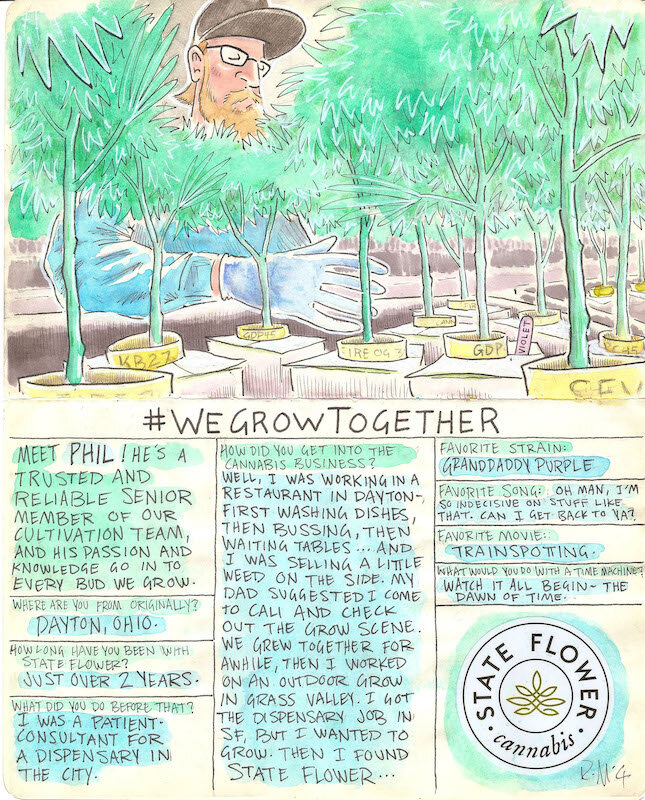 KB27
GDP45
FIRE OG 3
GDP
VIOLET
#WEGROWTOGETHER
MEET PHIL! HE'S A
TRUSTED AND
RELIABLE SENIOR
MEMBER OF OUR
CULTIVATION TEAM,
AND HIS PASSION AND
KNOWLEDGE GO IN TO
EVERY BUD WE GROW.
WHERE ARE YOU FROM ORIGINALLY?
DAYTON, OHIO.
HOW LONG HAVE YOU BEEN WITH
STATE FLOWER?
JUST OVER 2 YEARS.
WHAT DID YOU DO BEFORE THAT?
I WAS A PATIENT-
CONSULTANT FOR
A DISPENSARY IN
THE CITY.
HOW DID YOU GET INTO THE
CANNABIS BUSINESS?
WELL, I WAS WORKING IN A
RESTAURANT IN DAYTON-
FIRST WASHING DISHES,
THEN BUSSING, THEN
WAITING TABLES... AND
I WAS SELLING A LITTLE
WEED ON THE SIDE. MY
DAD SUGGESTED I COME
TO CALI AND CHECK
OUT THE GROW SCENE.
WE GREW TOGETHER FOR
AWHILE, THEN I WORKED
ON AN OUTDOOR GROW
IN GRASS VALLEY. I GOT
THE DISPENSARY JOB IN
SF, BUT I WANTED TO
GROW. THEN I FOUND
STATE FLOWER...
FAVORITE STRAIN:
GRANDDADDY PURPLE
FAVORITE SONG: OH MAN, I'M
SO INDECISIVE ON STUFF LIKE
THAT. CAN I GET BACK TO YA?
FAVORITE MOVIE:
TRAINSPOTTING.
WHAT WOULD YOU DO WITH A TIME MACHINE?
WATCH IT ALL BEGIN - THE
DAWN OF TIME...
STATE FLOWER
cannabis